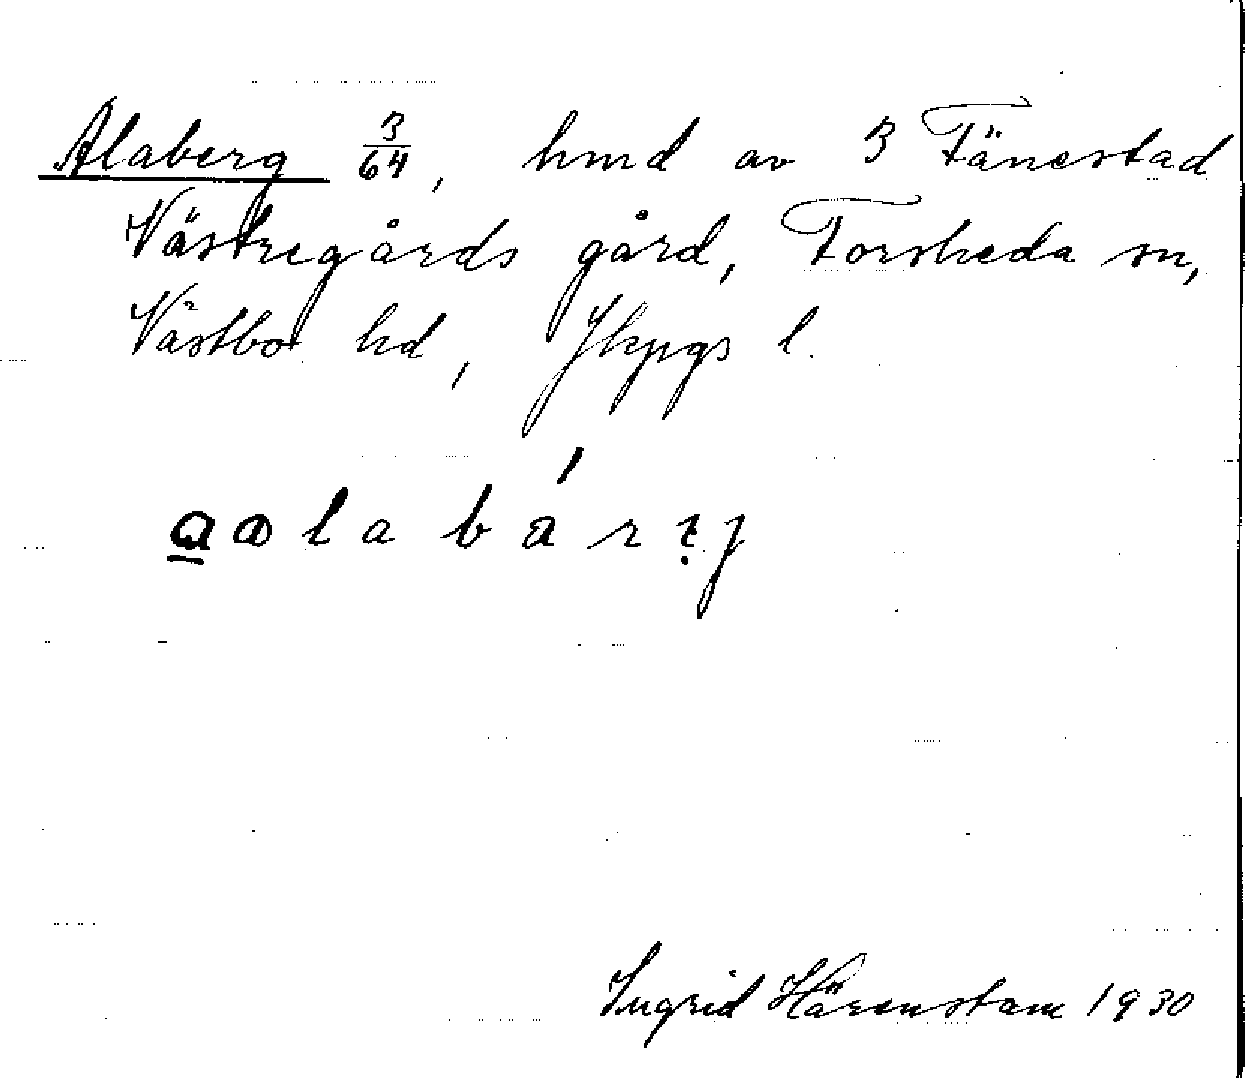 Alaberg 3/64, hmd av 3 Tänestad
Västregårds gård, Forsheda sn,
Västbo hd, Jkpgs l.
Ingrid Härenstam 1930